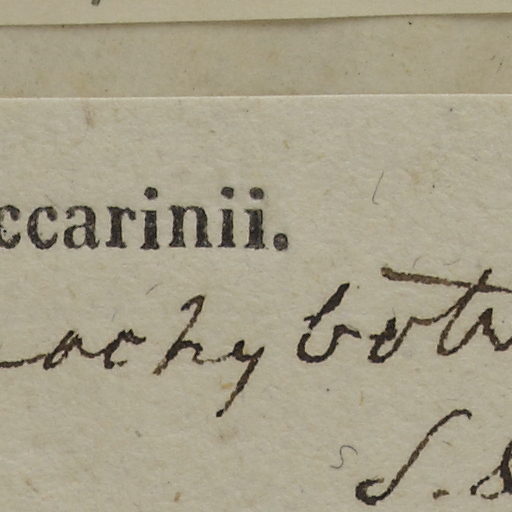 ccarinii.
achybotr
S. S